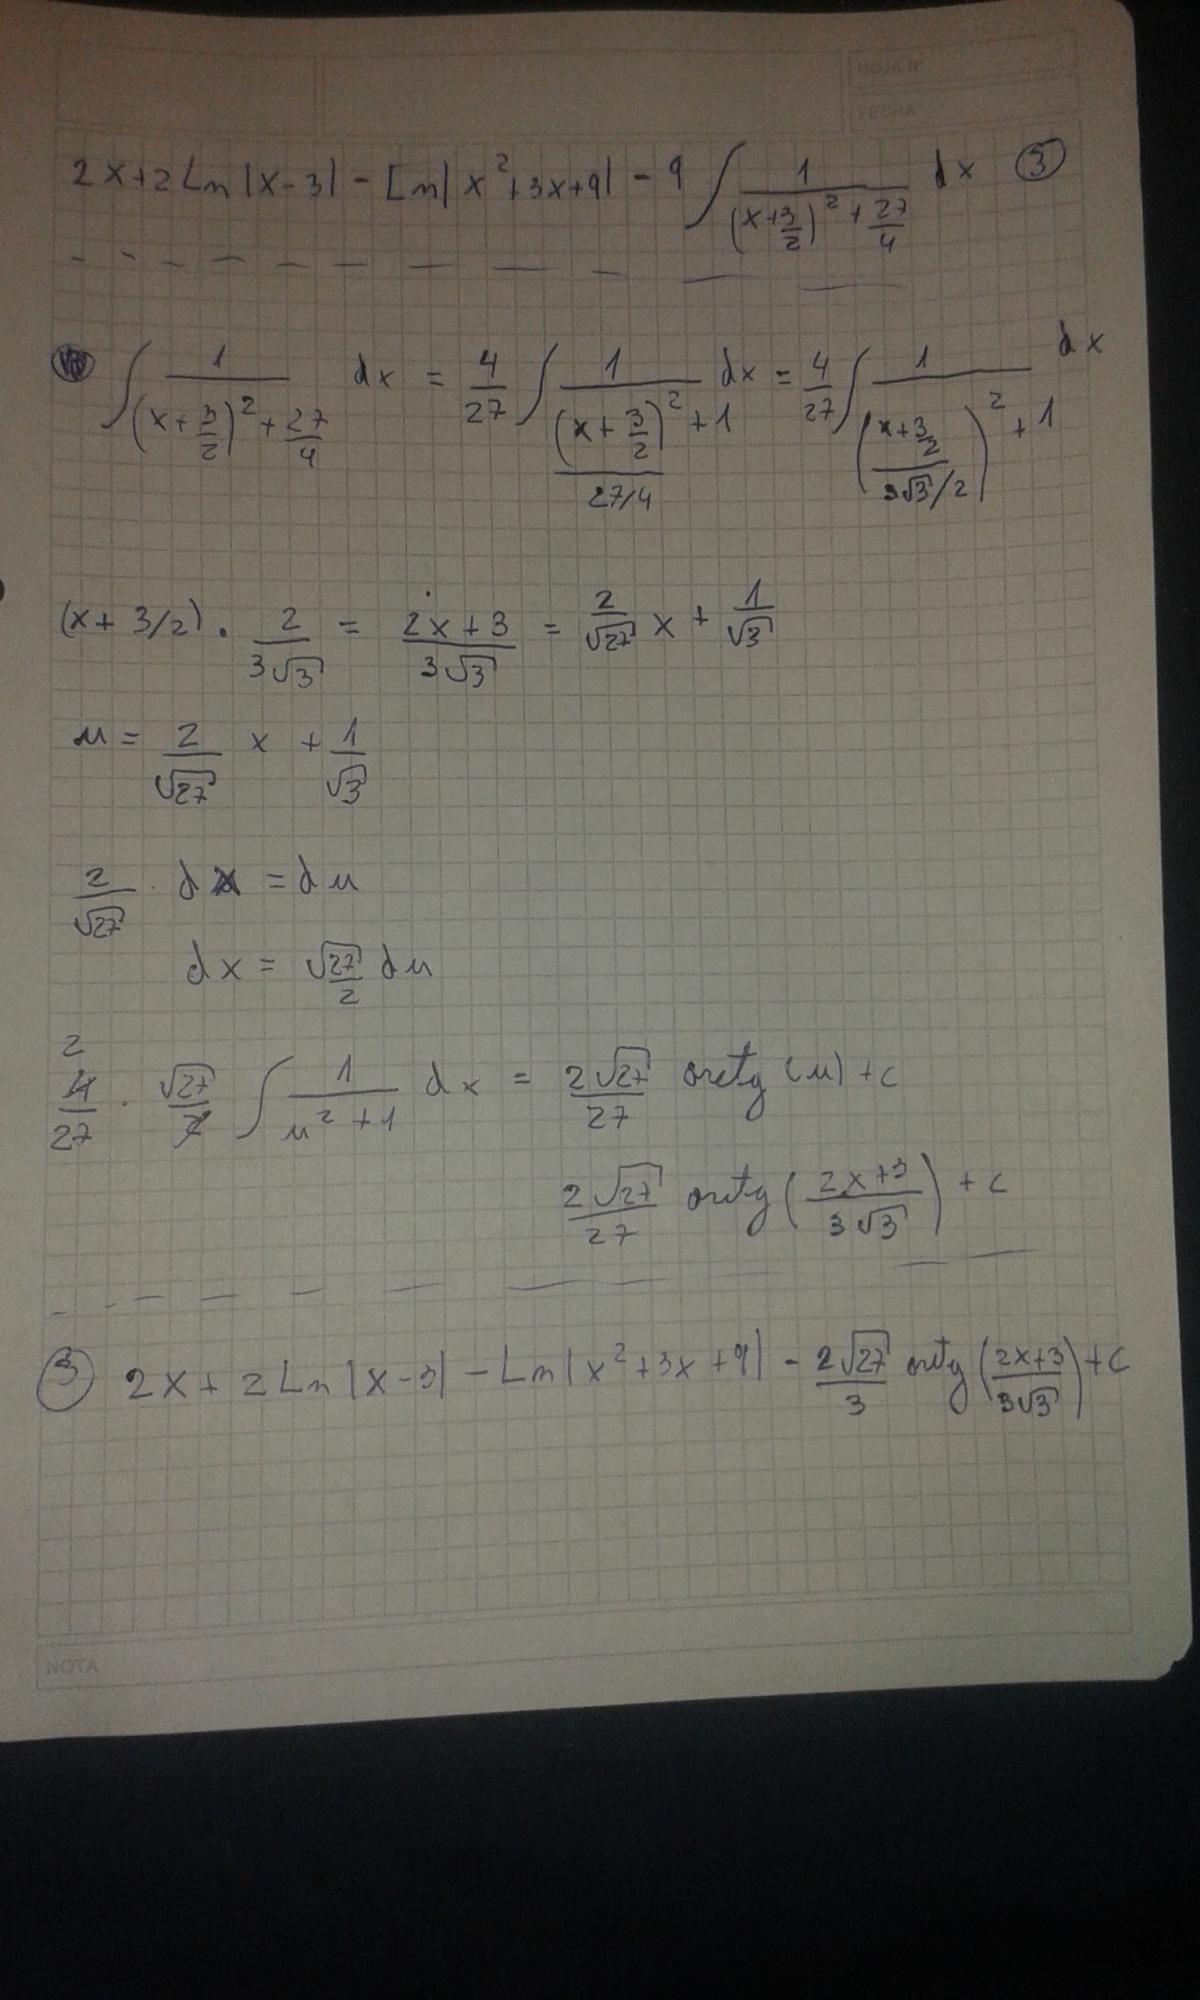 HOJA Nº
FECHA
2x+2Ln|x-3| - Ln|x²+3x+9| - 9 ∫ 1/((x+3/2)²+27/4) dx ③
∫ 1/((x+3/2)²+27/4) dx = 4/27 ∫ 1/((x+3/2)²/(27/4)+1) dx = 4/27 ∫ 1/(((x+3/2)/(3√3/2))²+1) dx
(x+3/2) · 2/(3√3) = (2x+3)/(3√3) = 2/√27 x + 1/√3
u = 2/√27 x + 1/√3
2/√27 · dx = du
dx = √27/2 du
2
4/27 · √27/2 ∫ 1/(u²+1) dx = 2√27/27 arctg (u) + c
2√27/27 arctg ((2x+3)/(3√3)) + c
③ 2x + 2Ln|x-3| - Ln|x²+3x+9| - 2√27/3 arctg ((2x+3)/(3√3)) + c
NOTA